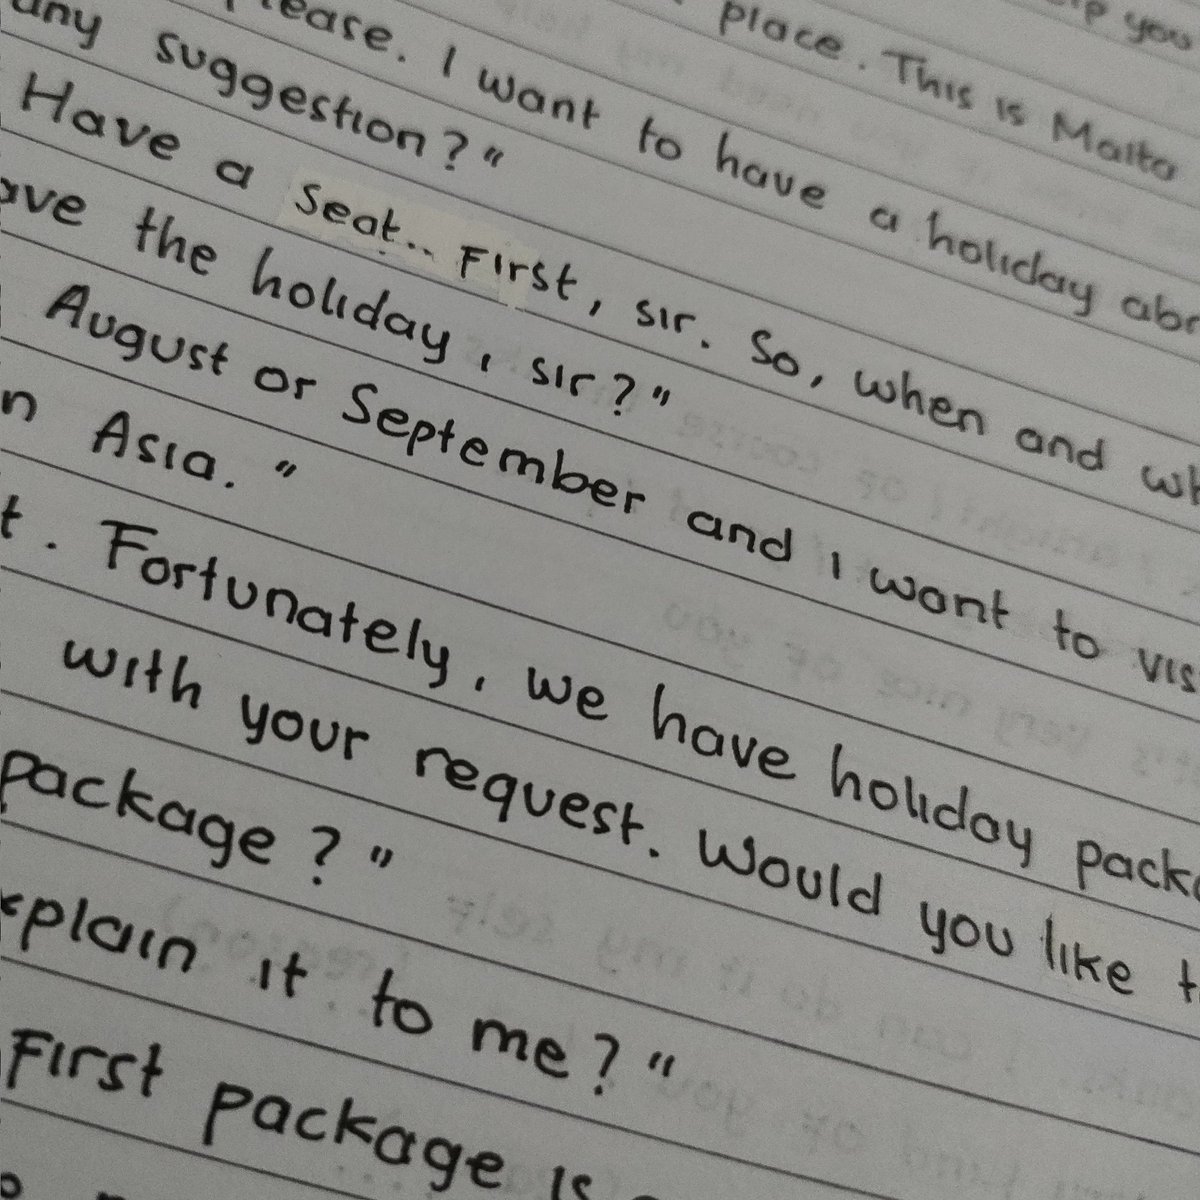 place. This is Malta
please. I want to have a holiday
any suggestion?"
Have a seat.. First, sir. So, when and
the holiday, sir?"
August or September and I want to
Asia."
Fortunately, we have holiday
with your request. Would you like
package?"
it to me?"
First package is